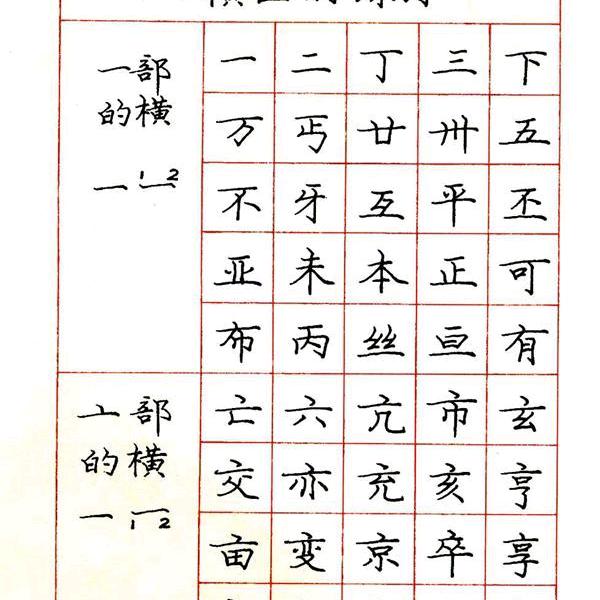 一部
的横
一 1 2
一 二 丁 三 下
万 丐 廿 卅 五
不 牙 互 平 丕
亚 未 本 正 可
布 丙 丝 亘 有
亠部
的横
一 1 2
亡 六 亢 市 玄
交 亦 充 亥 亨
亩 变 京 卒 享